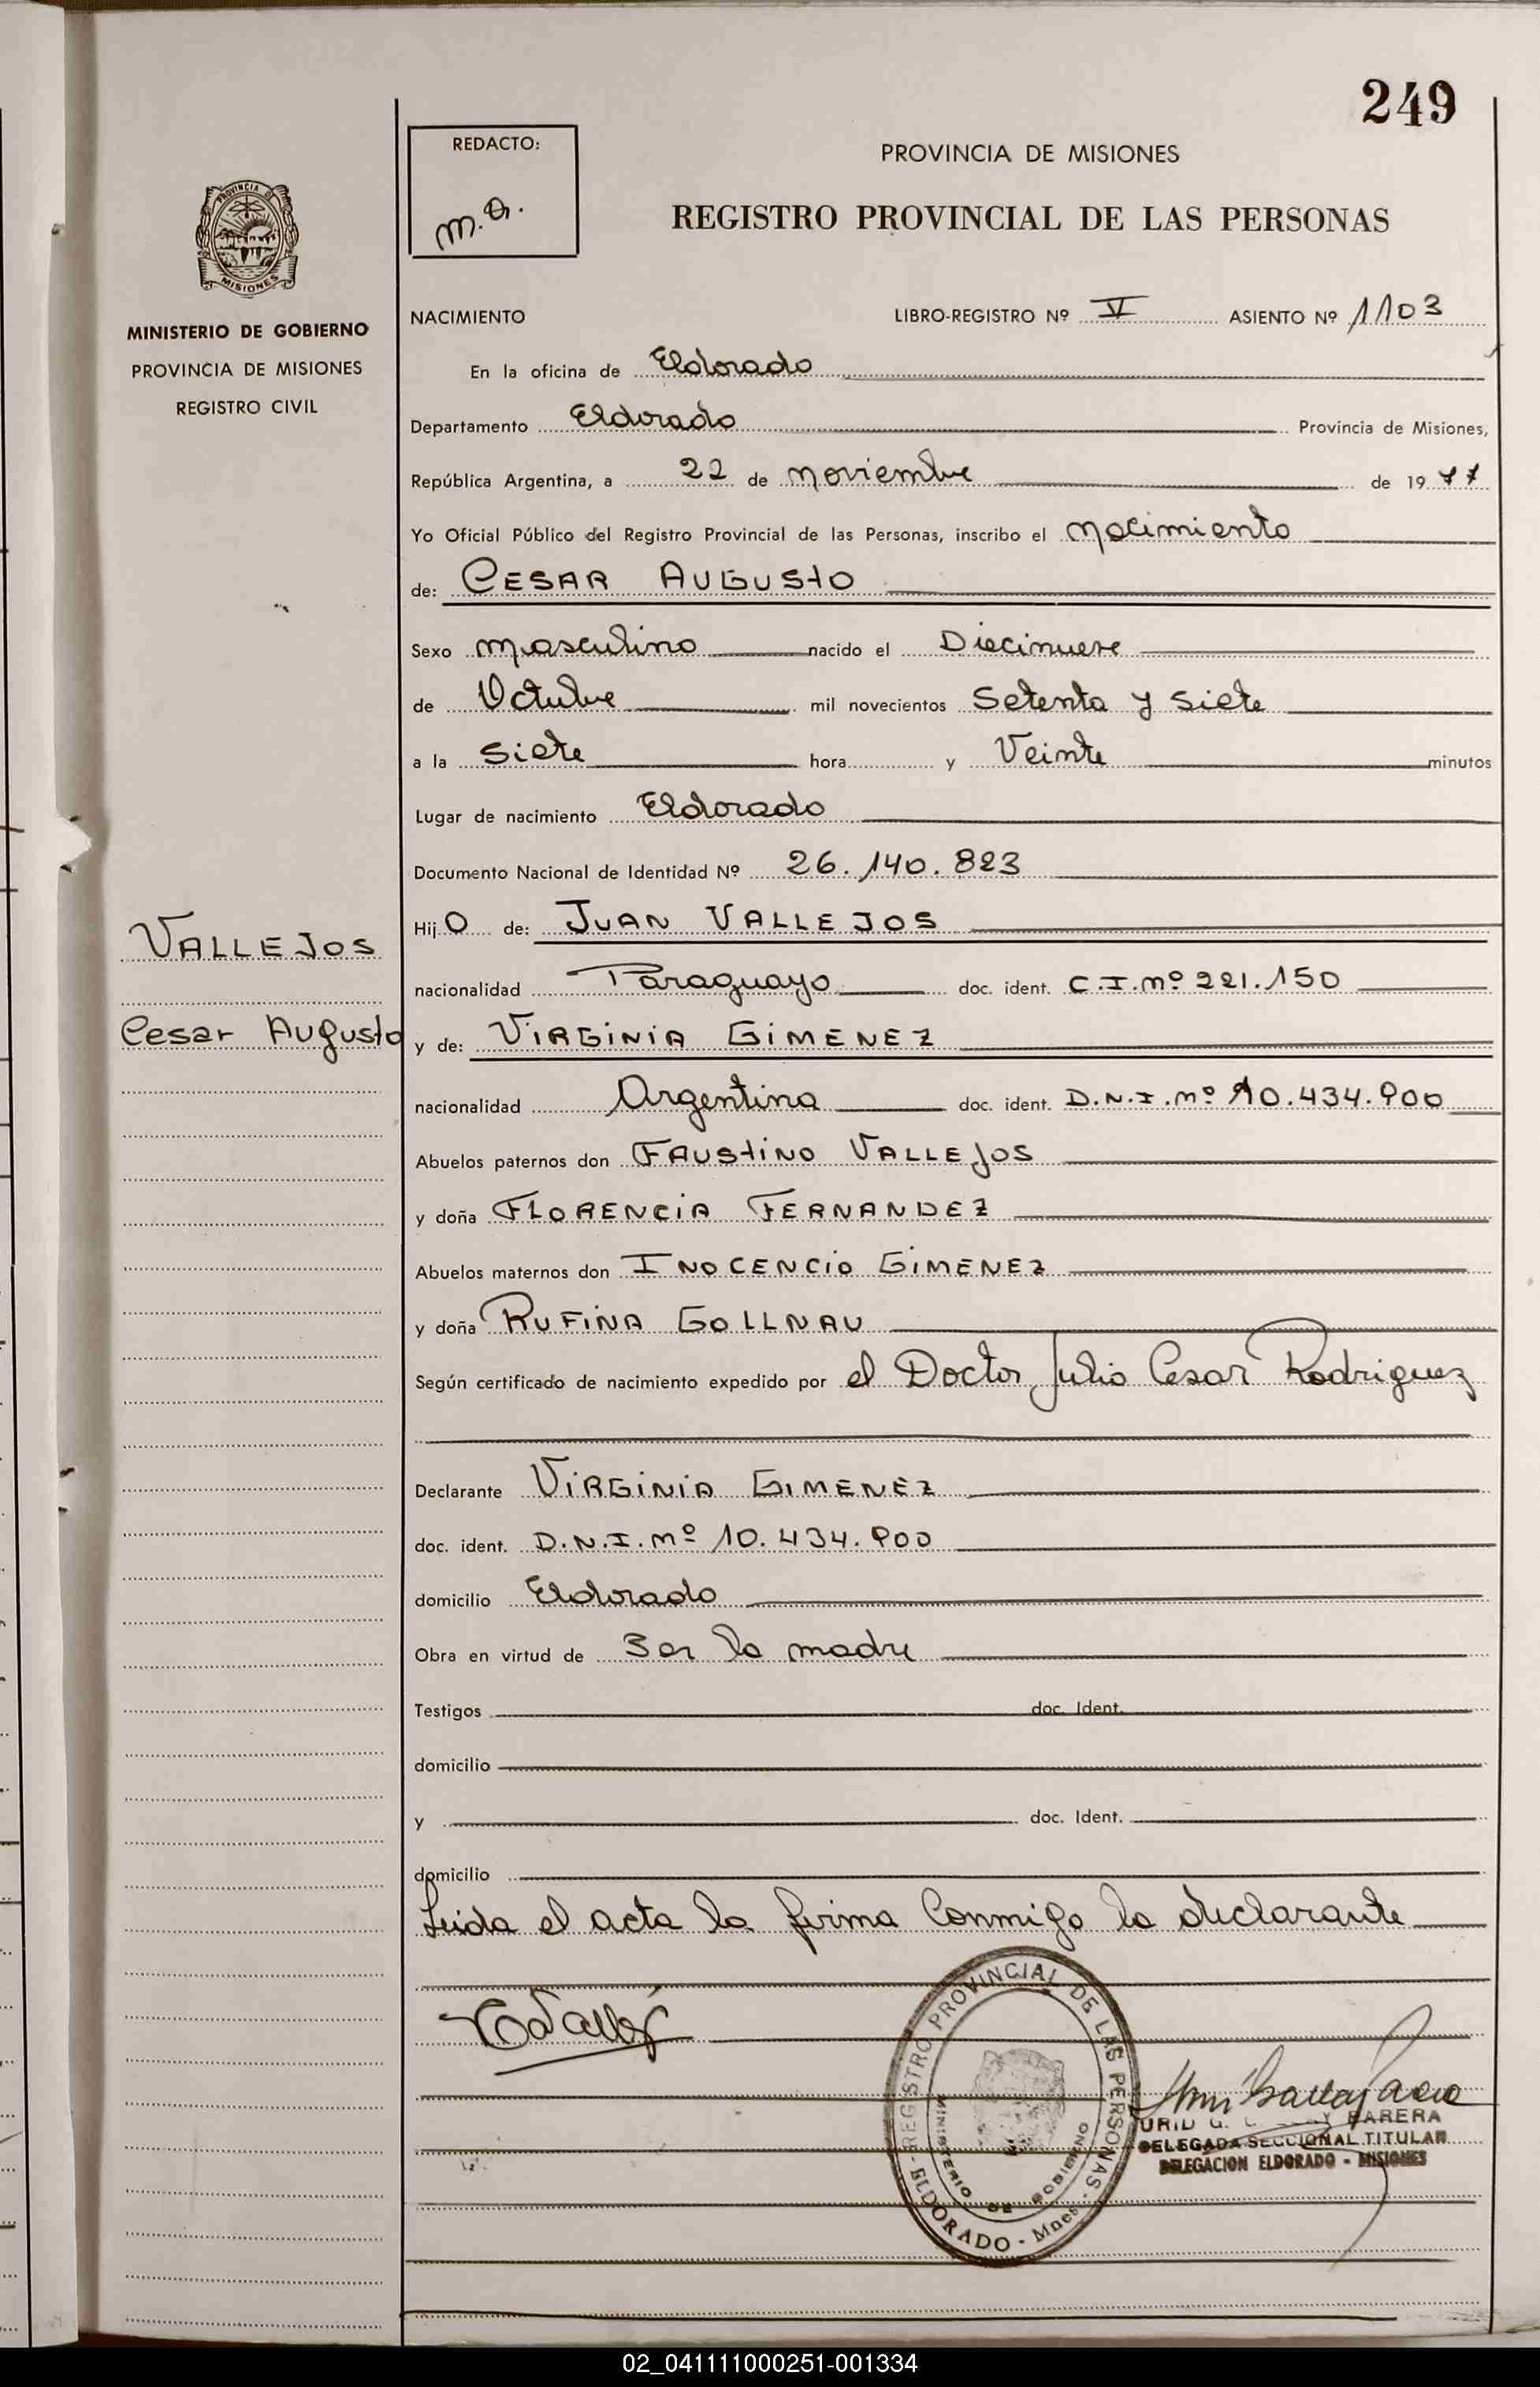 249
REDACTO:
PROVINCIA DE MISIONES
REGISTRO PROVINCIAL DE LAS PERSONAS
PROVINCIA DE
MISIONES
MINISTERIO DE GOBIERNO
PROVINCIA DE MISIONES
REGISTRO CIVIL
NACIMIENTO LIBRO-REGISTRO Nº VI ASIENTO Nº 1103
En la oficina de Eldorado
Departamento Eldorado Provincia de Misiones,
República Argentina, a 22 de noviembre de 19 77
Yo Oficial Público del Registro Provincial de las Personas, inscribo el nacimiento
de: CESAR AUGUSTO
Sexo masculino nacido el Diecinueve
de Octubre mil novecientos Setenta y Siete
a la Siete hora y Veinte minutos
Lugar de nacimiento Eldorado
Documento Nacional de Identidad Nº 26.140.823
VALLEJOS
Hij O de: JUAN VALLEJOS
nacionalidad Paraguayo doc. ident. C.I.nº 221.150
Cesar Augusto
y de: VIRGINIA GIMENEZ
nacionalidad Argentina doc. ident. D.N.I.nº 10.434.900
Abuelos paternos don FAUSTINO VALLEJOS
y doña FLORENCIA FERNANDEZ
Abuelos maternos don INOCENCIO GIMENEZ
y doña RUFINA GOLLNAU
Según certificado de nacimiento expedido por el Doctor Julio Cesar Rodriguez
Declarante VIRGINIA GIMENEZ
doc. ident. D.N.I.nº 10.434.900
domicilio Eldorado
Obra en virtud de Ser la madre
Testigos doc. Ident.
domicilio
y doc. Ident.
domicilio
Leida el acta la firma Conmigo la declarante
REGISTRO PROVINCIAL DE LAS PERSONAS
MINISTERIO DE GOBIERNO
ELDORADO - Mnes.
BARERA
DELEGADA SECCIONAL TITULAR
DELEGACION ELDORADO - MISIONES
02_041111000251-001334